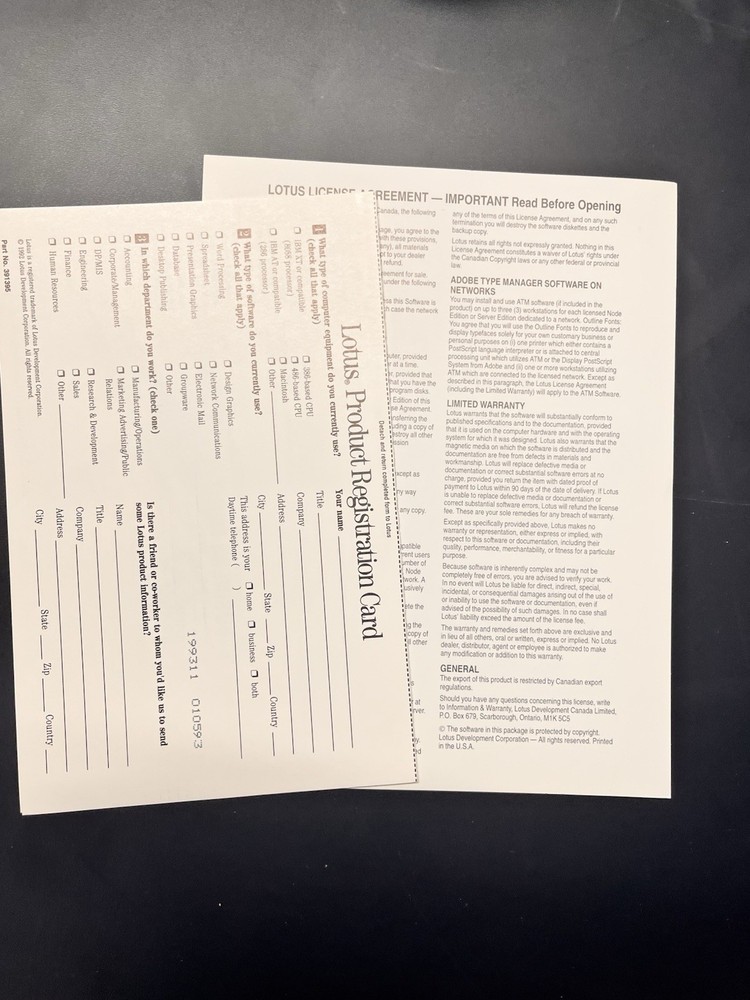 LOTUS LICENSE AGREEMENT — IMPORTANT Read Before Opening
Canada, the following
age, you agree to the
with these provisions,
any), all materials
pt to your dealer
refund.
eement for sale.
under the following
ms this Software is
h case the network
uter, provided
r at a time.
er, provided that
hat you have the
program disks.
Edition of this
se Agreement.
nsferring the
uding a copy of
estroy all other
ssion
xcept as
ny way
any copy.
npatible
rent users
umber of
Node
work. A
usively
ete the
g the
copy of
ll other
at
rver.
any of the terms of this License Agreement, and on any such
termination you will destroy the software diskettes and the
backup copy.
Lotus retains all rights not expressly granted. Nothing in this
License Agreement constitutes a waiver of Lotus' rights under
the Canadian Copyright laws or any other federal or provincial
law.
ADOBE TYPE MANAGER SOFTWARE ON
NETWORKS
You may install and use ATM software (if included in the
product) on up to three (3) workstations for each licensed Node
Edition or Server Edition dedicated to a network. Outline Fonts:
You agree that you will use the Outline Fonts to reproduce and
display typefaces solely for your own customary business or
personal purposes on (i) one printer which either contains a
PostScript language interpreter or is attached to central
processing unit which utilizes ATM or the Display PostScript
System from Adobe and (ii) one or more workstations utilizing
ATM which are connected to the licensed network. Except as
described in this paragraph, the Lotus License Agreement
(including the Limited Warranty) will apply to the ATM Software.
LIMITED WARRANTY
Lotus warrants that the software will substantially conform to
published specifications and to the documentation, provided
that it is used on the computer hardware and with the operating
system for which it was designed. Lotus also warrants that the
magnetic media on which the software is distributed and the
documentation are free from defects in materials and
workmanship. Lotus will replace defective media or
documentation or correct substantial software errors at no
charge, provided you return the item with dated proof of
payment to Lotus within 90 days of the date of delivery. If Lotus
is unable to replace defective media or documentation or
correct substantial software errors, Lotus will refund the license
fee. These are your sole remedies for any breach of warranty.
Except as specifically provided above, Lotus makes no
warranty or representation, either express or implied, with
respect to this software or documentation, including their
quality, performance, merchantability, or fitness for a particular
purpose.
Because software is inherently complex and may not be
completely free of errors, you are advised to verify your work.
In no event will Lotus be liable for direct, indirect, special,
incidental, or consequential damages arising out of the use of
or inability to use the software or documentation, even if
advised of the possibility of such damages. In no case shall
Lotus' liability exceed the amount of the license fee.
The warranty and remedies set forth above are exclusive and
in lieu of all others, oral or written, express or implied. No Lotus
dealer, distributor, agent or employee is authorized to make
any modification or addition to this warranty.
GENERAL
The export of this product is restricted by Canadian export
regulations.
Should you have any questions concerning this license, write
to Information & Warranty, Lotus Development Canada Limited,
P.O. Box 679, Scarborough, Ontario, M1K 5C5
© The software in this package is protected by copyright.
Lotus Development Corporation — All rights reserved. Printed
in the U.S.A.
Detach and return completed form to Lotus
Lotus® Product Registration Card
1 What type of computer equipment do you currently use?
(check all that apply)
IBM XT or compatible
(8088 processor)
IBM AT or compatible
(286 processor)
386-based CPU
486-based CPU
Macintosh
Other
2 What type of software do you currently use?
(check all that apply)
Word Processing
Spreadsheet
Presentation Graphics
Database
Desktop Publishing
Design Graphics
Network Communications
Electronic Mail
Groupware
Other
3 In which department do you work? (check one)
Accounting
Corporate/Management
DP/MIS
Engineering
Finance
Human Resources
Manufacturing/Operations
Marketing/Advertising/Public
Relations
Research & Development
Sales
Other
Your name
Title
Company
Address
City State Zip Country
This address is your home business both
Daytime telephone ( )
199311 010593
Is there a friend or co-worker to whom you'd like us to send
some Lotus product information?
Name
Title
Company
Address
City State Zip Country
Lotus is a registered trademark of Lotus Development Corporation.
© 1992 Lotus Development Corporation. All rights reserved.
Part No. 391395